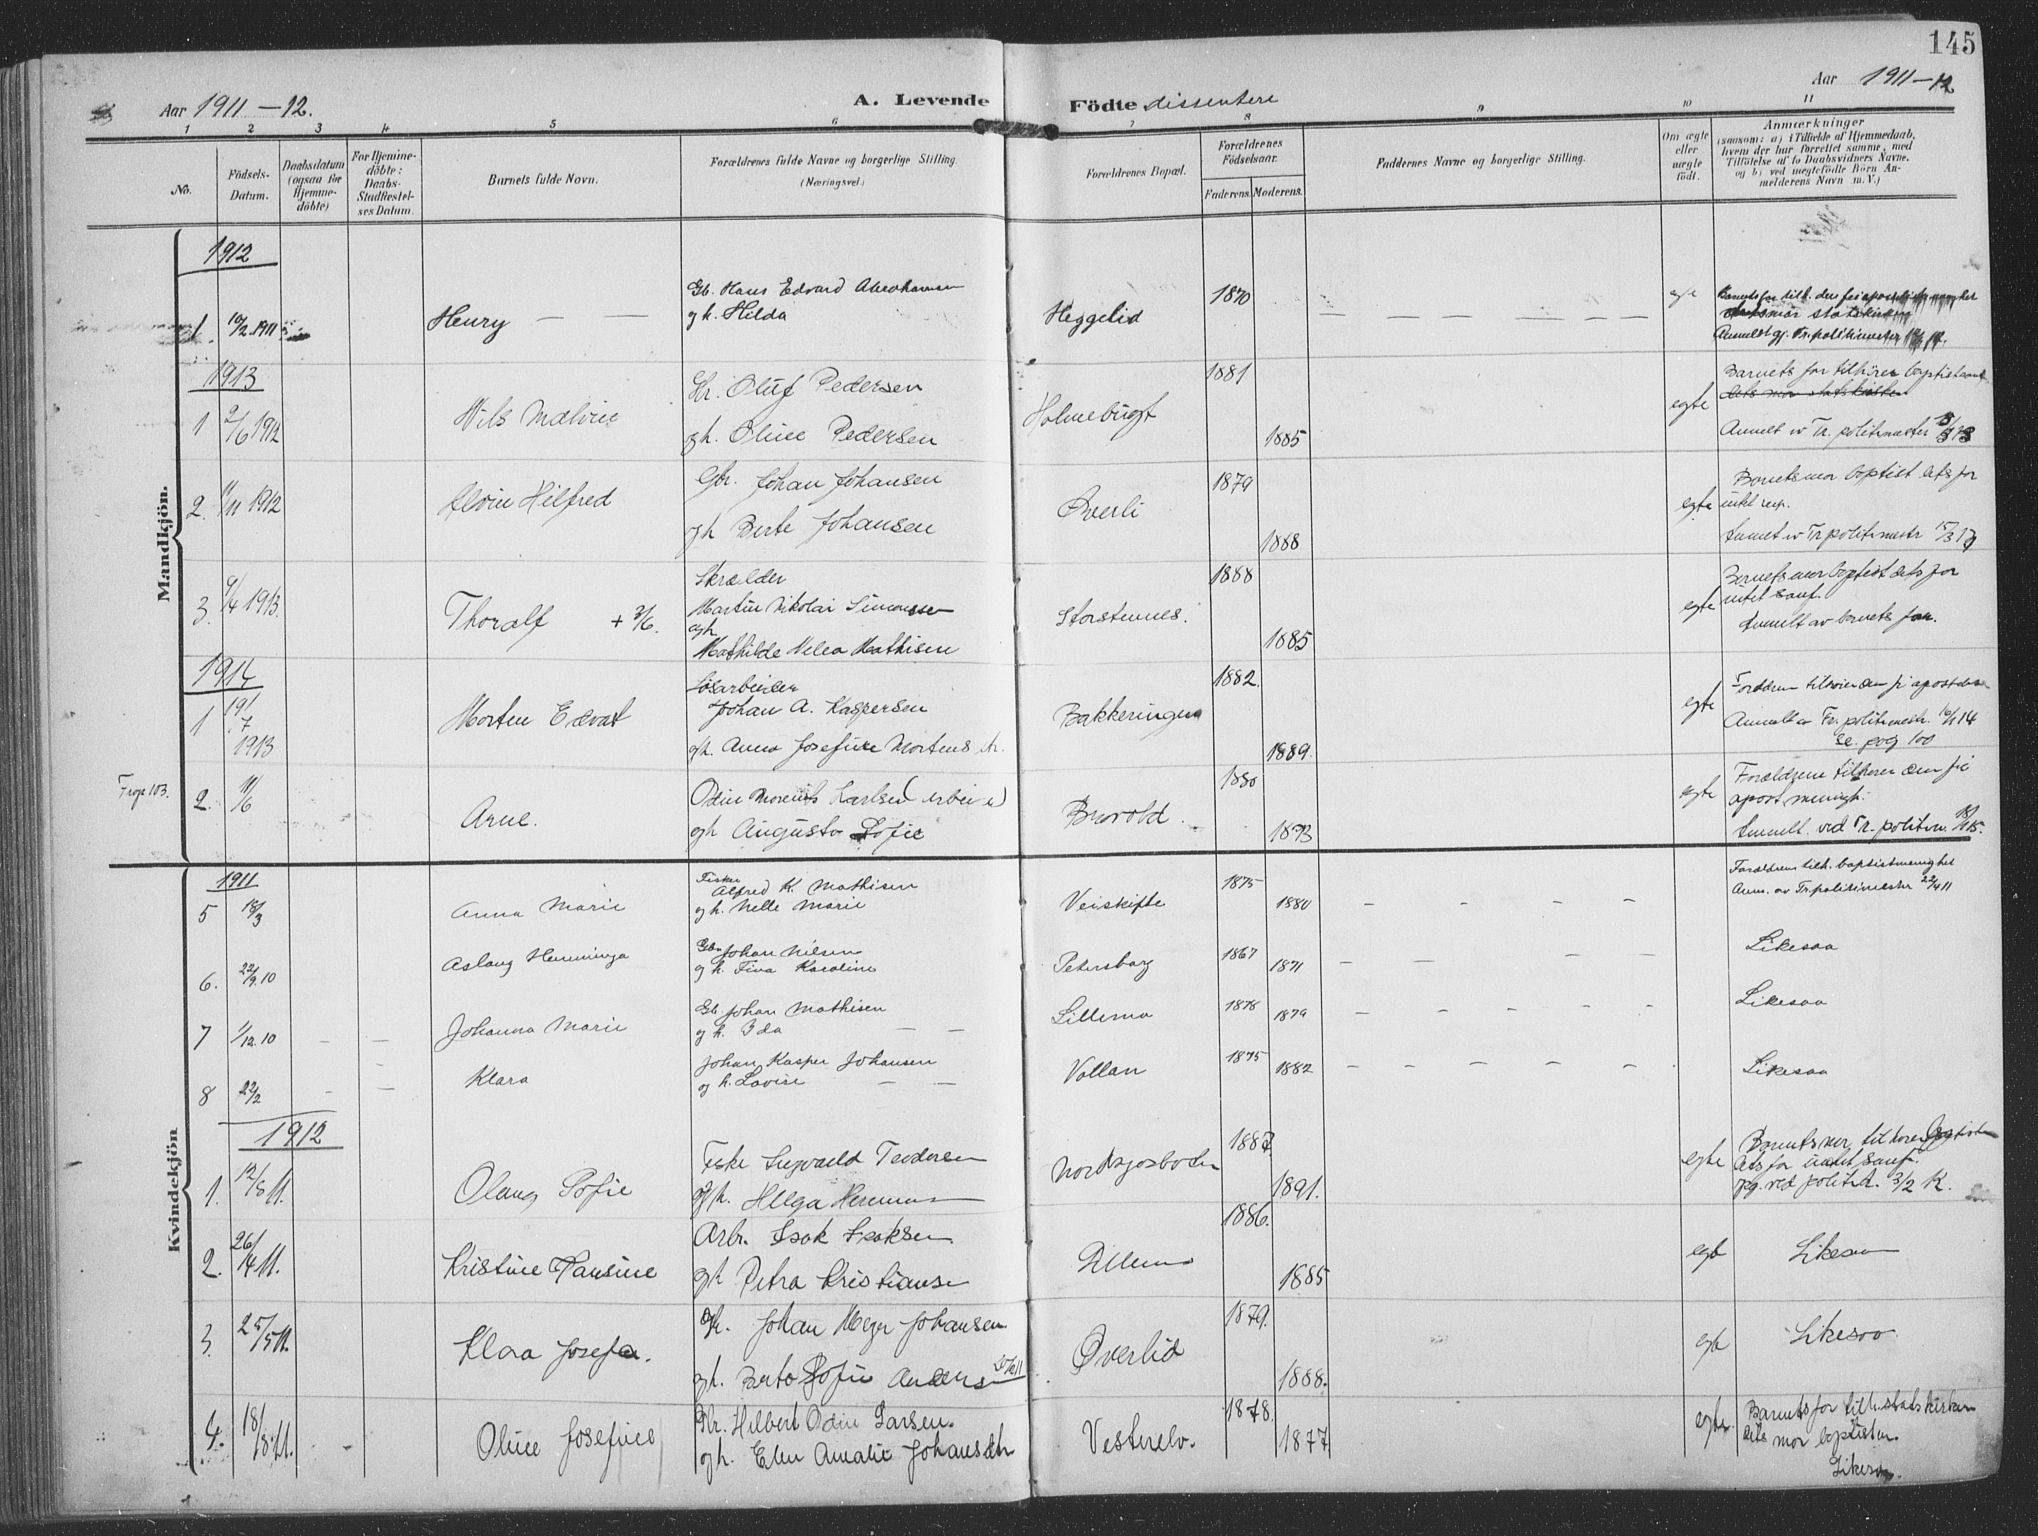 145
Aar 1911 – 12.
A. Levende
Födte dissentere
Aar 1911 – 12
1 2 3 4 5 6 7 8 9 10 11
No.
Födsels-
Datum.
Daabsdatum
(ogsaa for
Hjemme-
döbte)
For Hjemme-
döbte:
Daabs-
Stadfæstel-
ses Datum.
Barnets fulde Navn.
Forældrenes fulde Navne og borgerlige Stilling.
(Næringsvei.)
Forældrenes Bopæl.
Forældrenes
Födselsaar.
Faderens. Moderens.
Faddernes Navne og borgerlige Stilling.
Om ægte
eller
uægte
födt.
Anmærkninger
(saasom: a) i Tilfælde af Hjemmedaab,
hvem der har forrettet samme, med
Tilföielse af to Daabsvidners Navne.
og b) ved uægtefödte Börn An-
melderens Navn m. V.)
Mandkjön.
1912
1. 10/2 1911 Henry — —
Gb. Hans Edvard Abrahamsen
og h. Hilda
Heggelid 1870
egte
statskirken
Anmeldt gj. Tr. politimester
1913
1 2/6 1912 Nils Malvin
Gbr. Oluf Pedersen
og h. Oline Pedersen
Holmebugt 1881 1885 egte
Barnets far tilhører baptistsamf
dets mor statskirken
Anmelt v Tr. politimester
2. 11/11 1912 Alvin Hilfred
Gbr. Johan Johansen
og h Berte Johansen
Øverli 1879 1888 egte
Barnets mor baptist dets far
intet resp.
Anmelt v Tr politimestr 15/3 13
3. 9/4 1913. Thoralf + 3/6.
Skrædder
Martin Nikolai Simonsen
og h
Mathilde Helea Mathisen
Storstennes. 1888 1885 egte
Barnets mor baptist dets far
intet samf.
Anmelt av barnets far.
1914
1 19/7 1913 Morten Edvat
Løsarbeider
Johan A. Kaspersen
og h. Anna Josefine Mortens dtr.
Bakkeringen 1882. 1889. egte
Foreldrene tilhører den fri apostoliske
Anmelt v Tr. politimestr. 16/1 14
se. pag 100
Frap 103.
2. 11/6 Arne.
Odin Morents Karlsen (arbeider)
og h Augusta Sofie
Burvold. 1880 1893 egte
Forældrene tilhører den frie
apost. menigh.
Anmelt. ved Tr. politim. 18/1 15.
Kvindekjön
1911
5 18/3 Anna Marie
Fisker
Alfred K. Mathisen
og h. Nelle Marie
Veiskifte 1875 1880 – – – –
Forældrene tilh. baptistmenighet
Anm. av Tr. politimester 22/4 11
6. 22/9.10 Aslaug Henninga
Gbr Johan Nilsen
og h. Fina Karoline
Petersborg 1867 1871 – – – – –
Likesaa
7 1/12.10 – – Johanna Marie
Gb Johan Mathisen
og h. Ida — —
Lillemo 1878 1879 – – – – –
Likesaa
8 22/2 – – Klara
Johan Kasper Johansen
og h. Lovise — —
Vollan 1875 1882 – – – – –
Likesaa
1912
1. 12/8 11. Olaug Sofie
Fisker Sigvald Teodorsen
og h. Helga Hermans
Nordkjosboden 1887 1891. egte
Barnets mor tilhører baptist
dets far intet samf.
opg. ved politid. 3/2 12.
2. 26/4 11. Kristine Hansine
Arbr. Isak Isaksen
og h Petra Kristianse
Lillemo 1886. 1885 egte
Likesaa
3. 25/5 11. Klara Josefa.
Gbr. Johan Meyer Johansen
og h. Berte Sofie Anders
Øverlid 1879. 1888. egte
Likesaa.
4. 18/8. 11. – Oline Josefine
Gbr. Hilbert Odin Larsen.
og h. Elen Amalie Johansdtr
Vesterelv. 1878. 1877 egte.
Barnets far tilh. statskirken
dets mor baptisten.
Likesaa.